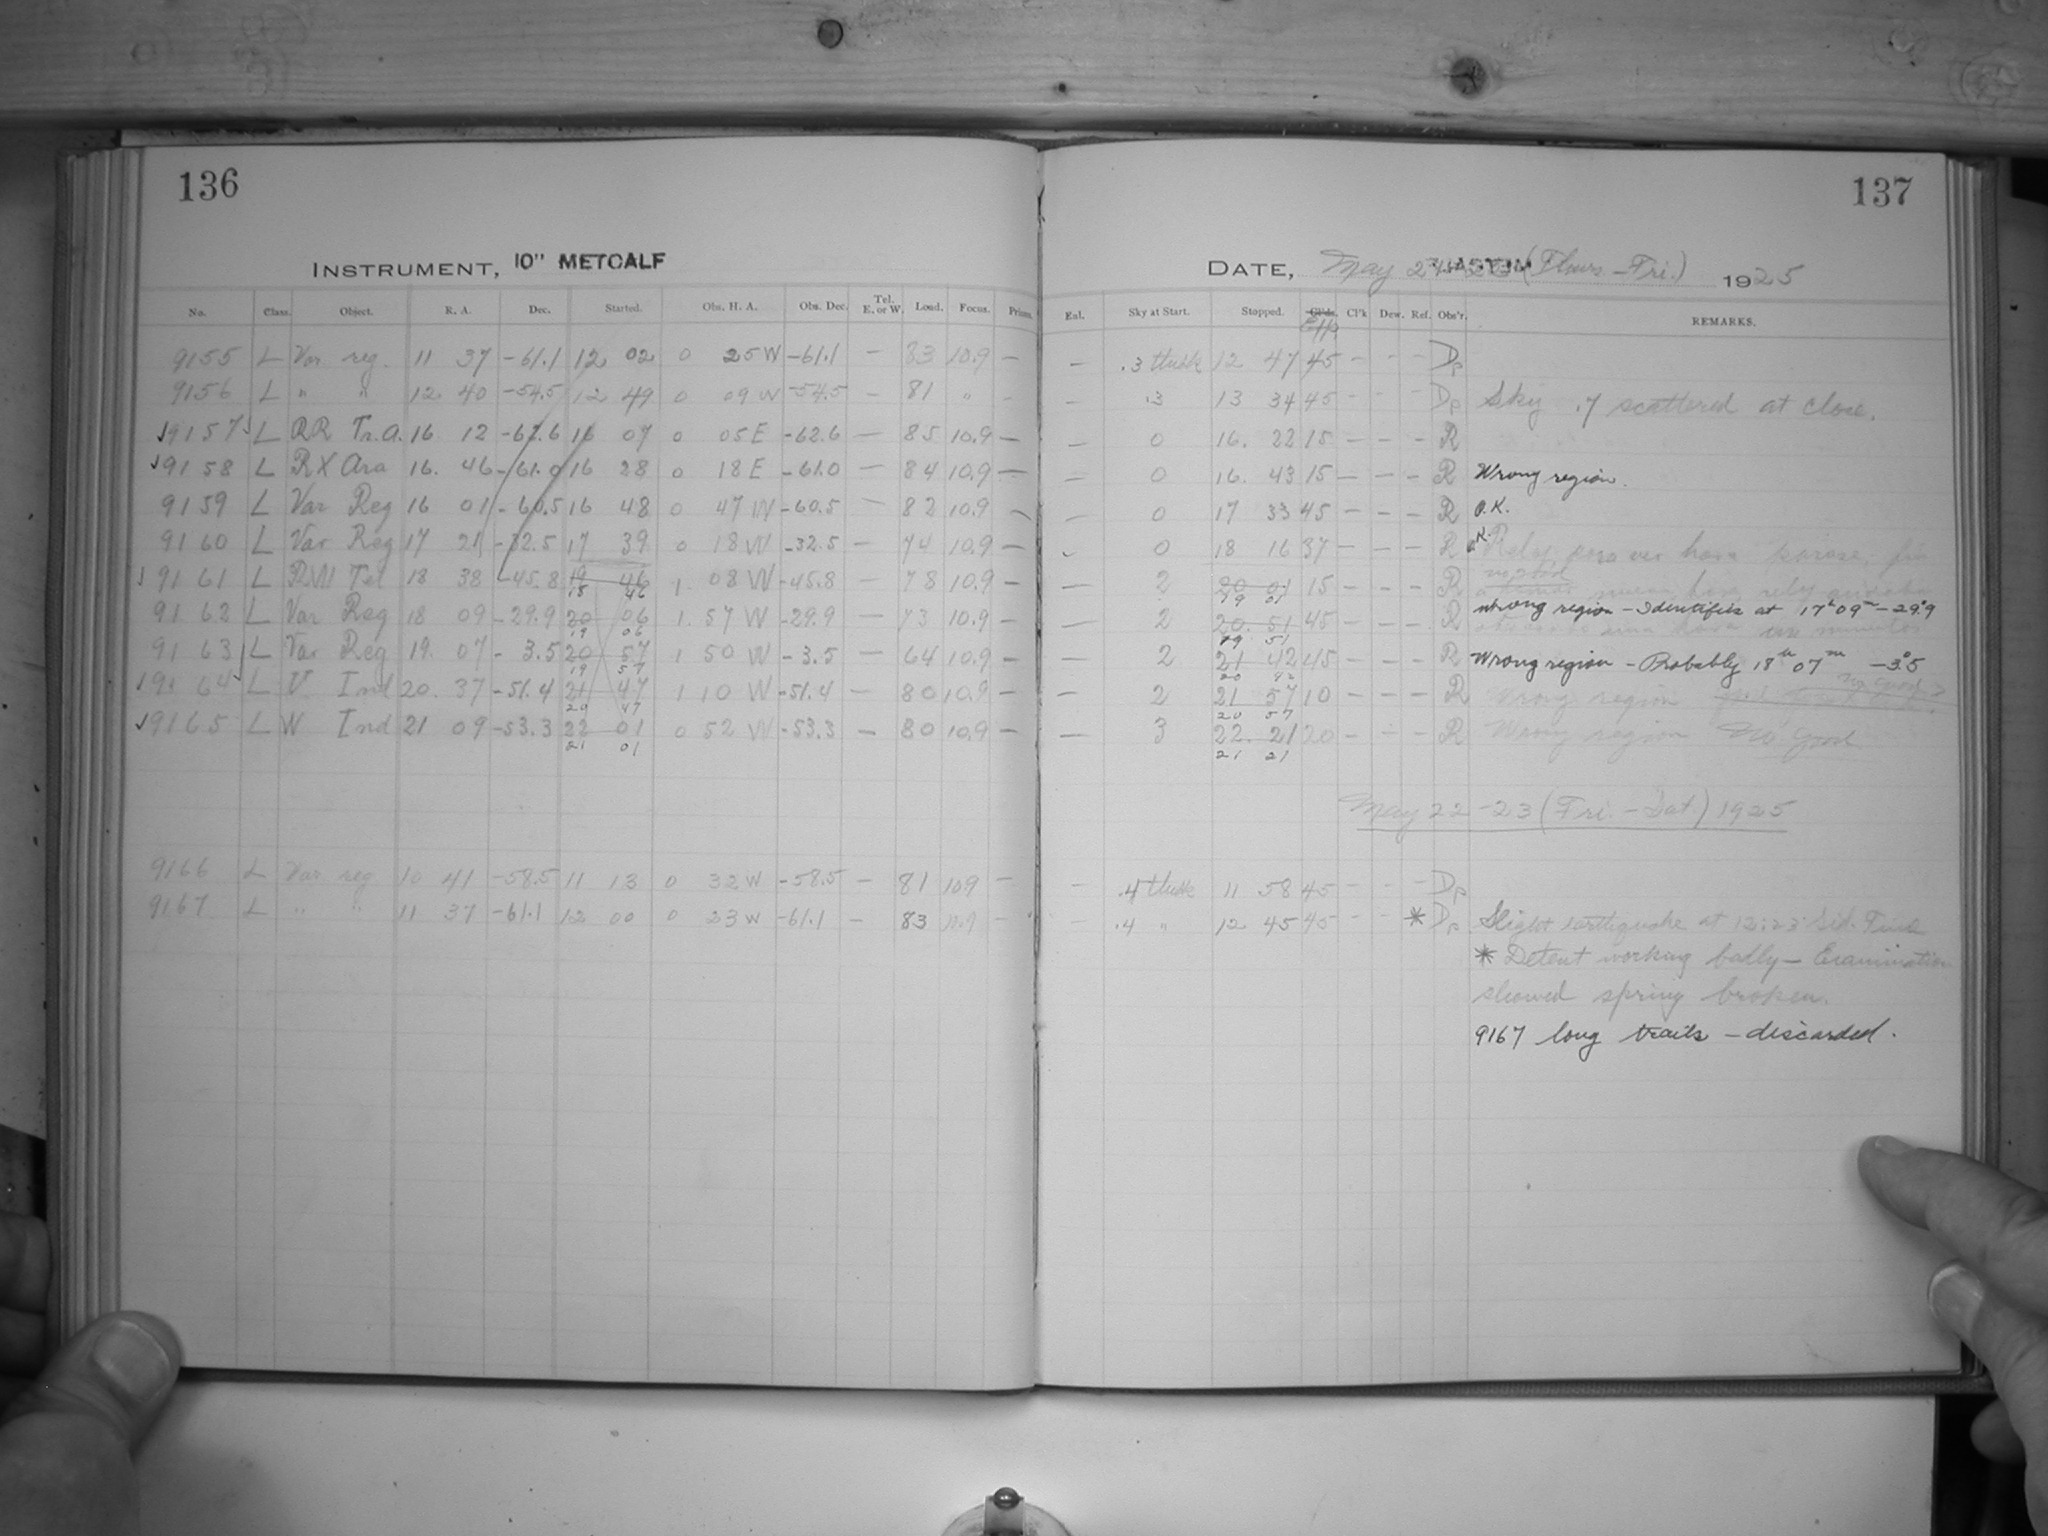 136
INSTRUMENT, 10" METCALF
No. Class. Object. R. A. Dec. Started. Obs. H. A. Obs. Dec. Tel. E. or W. Load. Focus. Prism.
9155 L Var reg. 11 37 -61.1 12 02 0 25 W -61.1 - 83 10.9 -
9156 L " " 12 40 -54.5 12 49 0 09 W -54.5 - 81 " -
9157 L RR Tr.A. 16 12 -62.6 16 07 0 05 E -62.6 - 85 10.9 -
9158 L RX Ara 16. 46 -61.0 16 28 0 18 E -61.0 - 84 10.9 -
9159 L Var Reg 16 01 -60.5 16 48 0 47 W -60.5 - 82 10.9 -
9160 L Var Reg 17 21 -32.5 17 39 0 18 W -32.5 - 74 10.9 -
9161 L Tel 18 38 -45.8 19 46 1. 08 W -45.8 - 78 10.9 -
18 46
9162 L Var Reg 18 09 -29.9 20 06 1. 57 W -29.9 - 73 10.9 -
19 06
9163 L Var Reg 19. 07 - 3.5 20 57 1 50 W - 3.5 - 64 10.9 -
19 57
9164 L Ind 20. 37 -51.4 21 47 1 10 W -51.4 - 80 10.9 -
20 47
9165 L W Ind 21 09 -53.3 22 01 0 52 W -53.3 - 80 10.9 -
21 01
9166 L Var reg 10 41 -58.5 11 13 0 32 W -58.5 - 81 10.9 -
9167 L " " 11 37 -61.1 12 00 0 23 W -61.1 - 83 10.9 -
137
DATE, May (Thurs-Fri.) 1925
Eul. Sky at Start. Stopped. Cl'ds. Cl'k Dew. Ref. Obs'r. REMARKS.
Eff.
- .3 12 47 45 - - - Dp
- .3 13 34 45 - - - Dp Sky .7 scattered at close.
- 0 16. 22 15 - - - R
- 0 16. 43 15 - - - R Wrong region.
- 0 17 33 45 - - - R O.K.
- 0 18 16 37 - - - R O.K.
- 2 20 01 15 - - - R
19 01
- 2 20. 51 45 - - - R Wrong region - Identifies at 17h 09m -29°.9
19 51
- 2 21 42 45 - - - R Wrong region - Probably 18h 07m -3°.5
20 42
- 2 21 57 10 - - - R Wrong region
20 57
- 3 22. 21 20 - - - R Wrong region No Good
21 21
May 22-23 (Fri.-Sat.) 1925
- .4 11 58 45 - - - Dp
- .4 " 12 45 45 - - * Dp Slight earthquake at 12:23 Sid. Time
* Detent working badly - Examination
showed spring broken.
9167 long trails - discarded.